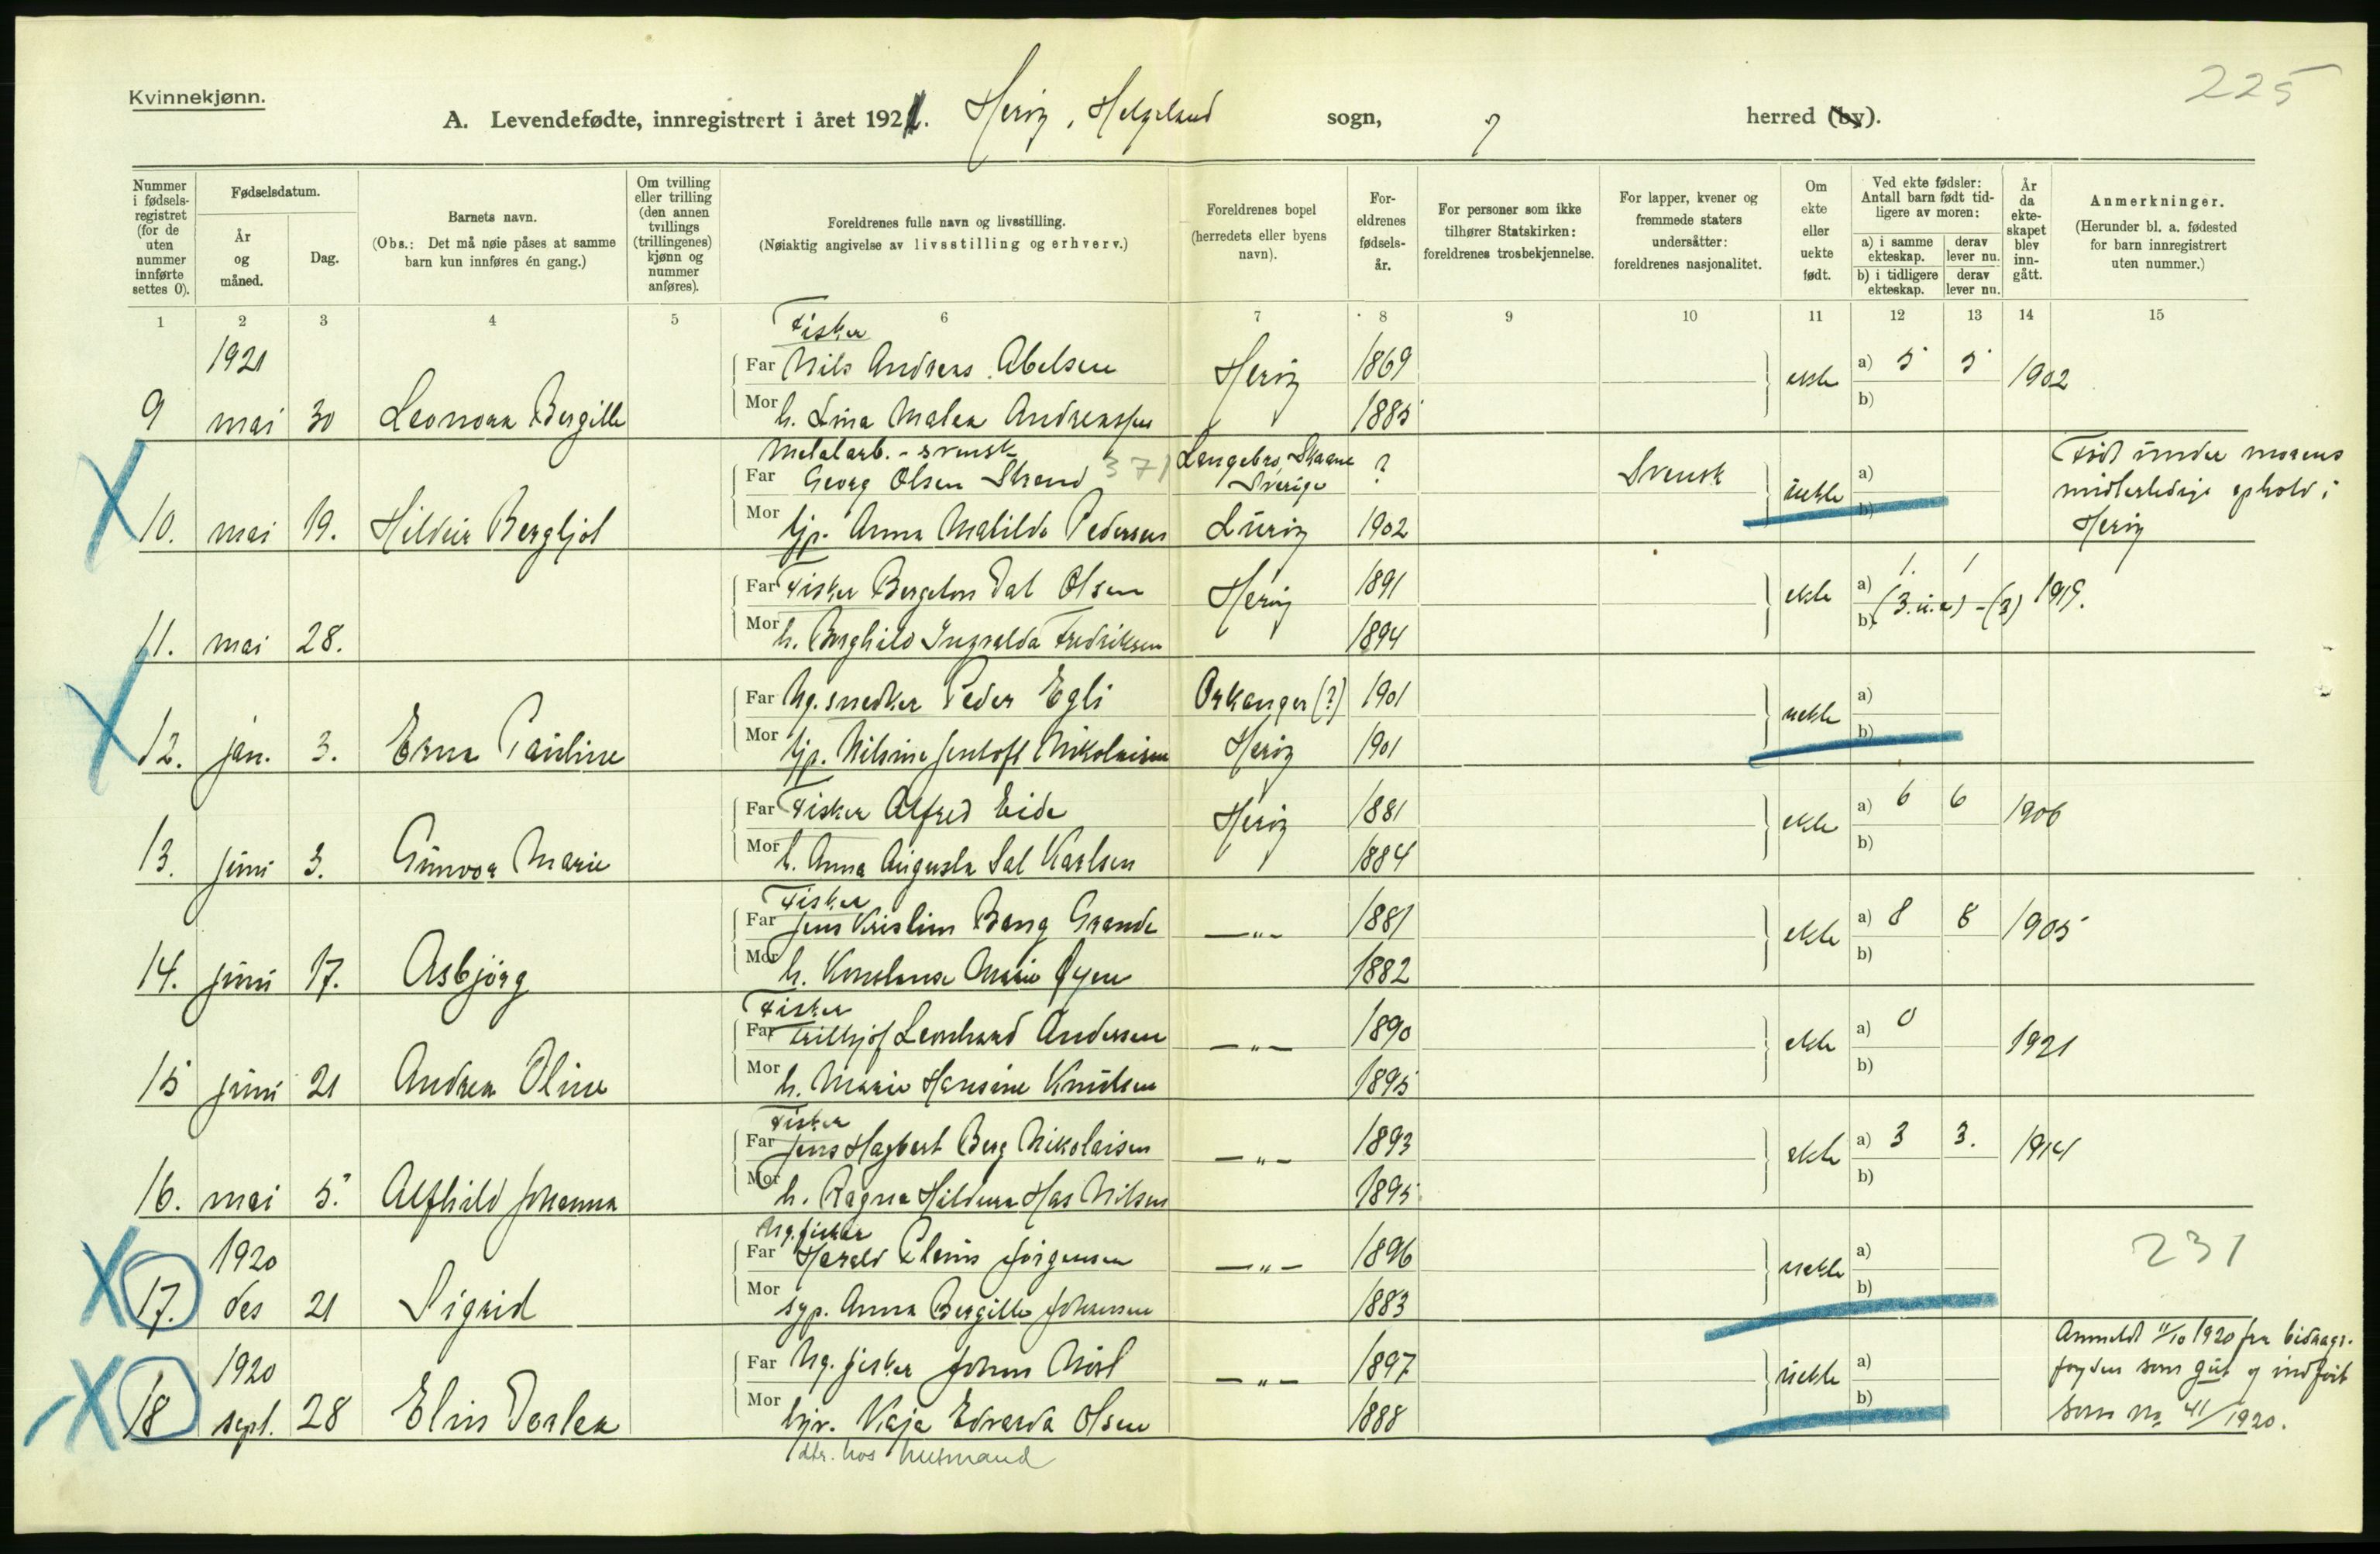 225
Kvinnekjønn.
A. Levendefødte, innregistrert i året 1921. Herøy, Helgeland sogn, herred (by).
Nummer i fødsels-registret (for de uten nummer innførte settes 0).
Fødselsdatum.
År og måned.
Dag.
Barnets navn.
(Obs.: Det må nøie påses at samme barn kun innføres én gang.)
Om tvilling eller trilling (den annen tvillings (trillingenes) kjønn og nummer anføres).
Foreldrenes fulle navn og livsstilling.
(Nøiaktig angivelse av livsstilling og erhverv.)
Foreldrenes bopel (herredets eller byens navn).
For-eldrenes fødsels-år.
For personer som ikke tilhører Statskirken: foreldrenes trosbekjennelse.
For lapper, kvener og fremmede staters undersåtter: foreldrenes nasjonalitet.
Om ekte eller uekte født.
Ved ekte fødsler: Antall barn født tid-ligere av moren:
a) i samme ekteskap. derav lever nu.
b) i tidligere ekteskap. derav lever nu.
År da ekte-skapet blev inn-gått.
Anmerkninger.
(Herunder bl. a. fødested for barn innregistrert uten nummer.)
1 2 3 4 5 6 7 8 9 10 11 12 13 14 15
Fisker
1921 Far Nils Andreas Abelsen Herøy 1869 ekte a) 5 5 1902
9 mai 30 Leonora Bergitte Mor h. Lina Malea Andreassen 1885 b)
Metalarb. - svensk 371 Langebro, Skaane
Far Georg Olsen Strand Sverige ? Svensk uekte a) Født under morens midlertidige ophold i Herøy
10. mai 19. Hildur Bergljot Mor tjp. Anna Matilde Pedersen Lurøy 1902 b)
Far Fisker Bergeton Dal Olsen Herøy 1891 ekte a) 1. 1 1919.
11. mai 28. Mor h. Borghild Ingvalda Fredriksen 1894 b) (3.u.e) - (3)
Far Ug. snedker Peder Egli Orkanger (?) 1901 uekte a)
12. jan. 3. Erna Pauline Mor tjp. Nilsine Jentoft Nikolaisen Herøy 1901 b)
Far Fisker Alfred Eide Herøy 1881 ekte a) 6 6 1906
13. juni 3. Gunvor Marie Mor h. Anna Augusta Sal Karlsen 1884 b)
Fisker
Far Jens Kristian Bang Grande —"— 1881 ekte a) 8 8 1905
14. juni 17. Asbjörg Mor h. Konstanse Marie Øyen 1882 b)
Fisker
Far Frithjof Leonhard Andersen —"— 1890 ekte a) 0 1921
15 juni 21 Andrea Oline Mor h. Marie Hansine Knutsen 1895 b)
Fisker
Far Jens Hagbart Berg Nikolaisen —"— 1893 ekte a) 3 3. 1914
16. mai 5. Alfhild Johanna Mor h. Ragna Hildura Has Nilsen 1895 b)
Ug. fisker
1920 Far Harald Jørgensen —"— 1896 uekte a) 231
17. des 21 Sigrid Mor syp. Anna Bergitte Johansen 1883 b)
1920 Far Ug. fisker Johan —"— 1897 uekte a) Anmeldt 11/10 1920 fra bidrags-
fogden som gut og indført
18 sept. 28 Elin Dorlea Mor Kaja Edvarda Olsen 1888 b) som no 41/1920.
dtr. hos husmand